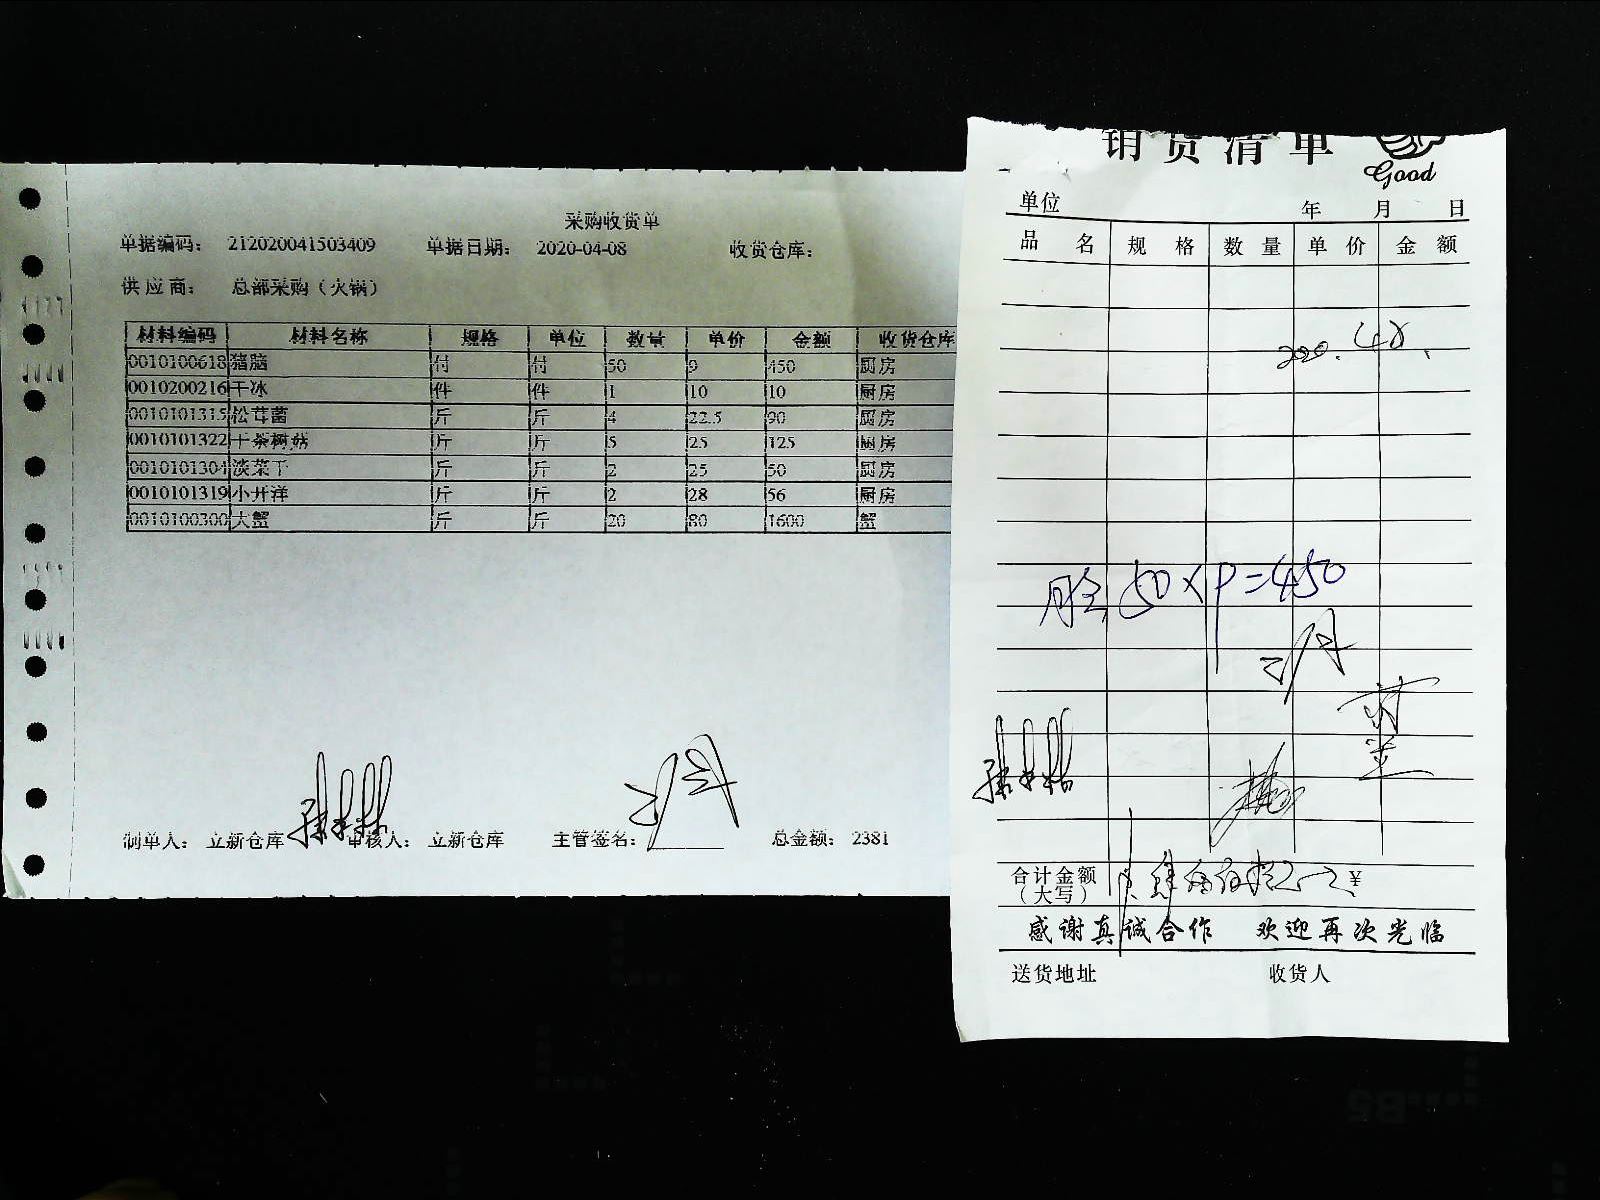 采购收货单
单据编码： 212020041503409 单据日期： 2020-04-08 收货仓库：
供应商： 总部采购（火锅）
材料编码 材料名称 规格 单位 数量 单价 金额 收货仓库
0010100618 猪脑 付 付 50 9 450 厨房
0010200216 干冰 件 件 1 10 10 厨房
0010101315 松茸菌 斤 斤 4 22.5 90 厨房
0010101322 干茶树菇 斤 斤 5 25 125 厨房
0010101304 淡菜干 斤 斤 2 25 50 厨房
0010101319 小开洋 斤 斤 2 28 56 厨房
0010100300 大蟹 斤 斤 20 80 1600 蟹
制单人： 立新仓库 审核人： 立新仓库 主管签名： 总金额： 2381
销货清单
Good
单位 年 月 日
品名 规格 数量 单价 金额
50×9=450
合计金额
（大写） ¥
感谢真诚合作 欢迎再次光临
送货地址 收货人